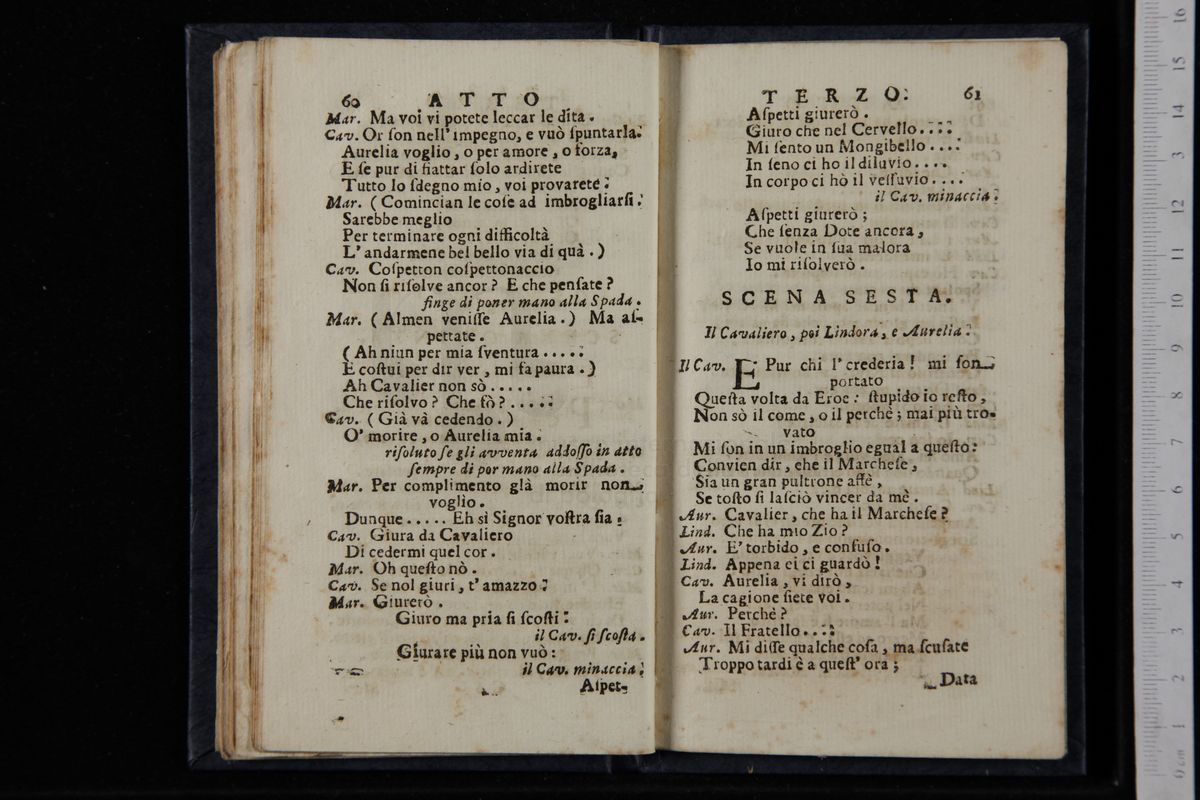 60 ATTO
Mar. Ma voi vi potete leccar le dita.
Cav. Or ſon nell' impegno, e vuò ſpuntarla.
Aurelia voglio, o per amore, o forza,
E ſe pur di fiattar ſolo ardirete
Tutto lo ſdegno mio, voi provarete.
Mar. (Comincian le coſe ad imbrogliarſi.
Sarebbe meglio
Per terminare ogni difficoltà
L' andarmene bel bello via di quà.)
Cav. Coſpetton coſpettonaccio
Non ſi riſolve ancor? E che penſate?
finge di poner mano alla Spada.
Mar. (Almen veniſſe Aurelia.) Ma aſ-
pettate.
(Ah niun per mia ſventura .....
E coſtui per dir ver, mi fa paura.)
Ah Cavalier non sò .....
Che riſolvo? Che fò? .....
Cav. (Già và cedendo.)
O' morire, o Aurelia mia.
riſoluto ſe gli avventa addoſſo in atto
ſempre di por mano alla Spada.
Mar. Per complimento già morir non
voglio.
Dunque ..... Eh sì Signor voſtra ſia.
Cav. Giura da Cavaliero
Di cedermi quel cor.
Mar. Oh queſto nò.
Cav. Se nol giuri, t' amazzo.
Mar. Giurerò.
Giuro ma pria ſi ſcoſti.
il Cav. ſi ſcoſta.
Giurare più non vuò:
il Cav. minaccia.
Aſpet-
TERZO. 61
Aſpetti giurerò.
Giuro che nel Cervello....
Mi ſento un Mongibello....
In ſeno ci ho il diluvio....
In corpo ci hò il veſſuvio....
il Cav. minaccia.
Aſpetti giurerò;
Che ſenza Dote ancora,
Se vuole in ſua malora
Io mi riſolverò.
SCENA SESTA.
Il Cavaliero, poi Lindora, e Aurelia.
Il Cav. E Pur chi l' crederia! mi ſon
portato
Queſta volta da Eroe: ſtupido io reſto,
Non sò il come, o il perchè; mai più tro-
vato
Mi ſon in un imbroglio egual a queſto:
Convien dir, ehe il Marcheſe,
Sia un gran pultrone affè,
Se toſto ſi laſciò vincer da mè.
Aur. Cavalier, che ha il Marcheſe?
Lind. Che ha mio Zio?
Aur. E' torbido, e confuſo.
Lind. Appena ei ci guardò!
Cav. Aurelia, vi dirò,
La cagione ſiete voi.
Aur. Perchè?
Cav. Il Fratello....
Aur. Mi diſſe qualche coſa, ma ſcuſate
Troppo tardi è a queſt' ora;
Data